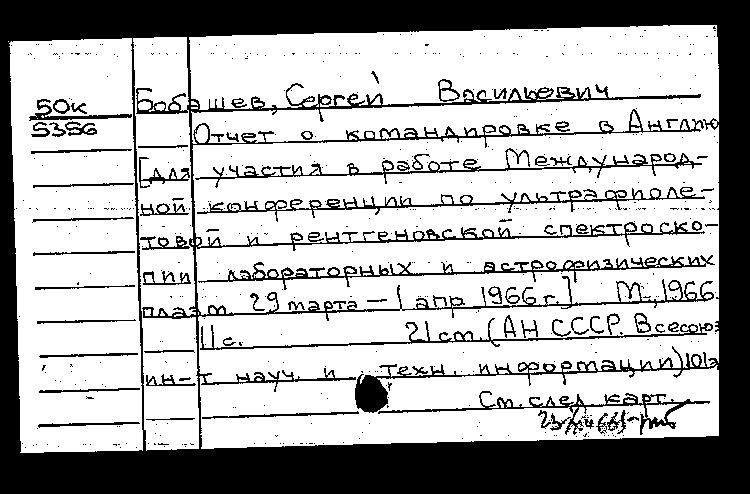 50к Бобашев, Сергей Васильевич
5356 Отчет о командировке в Англию
[для участия в работе Международ-
ной конференции по ультрафиоле-
товой и рентгеновской спектроско-
пии лабораторных и астрофизических
плазм. 29 марта – 1 апр 1966 г.] М., 1966.
11 с. 21 см. (АН СССР. Всесоюз
ин-т науч. и техн. информации) 101а
См. след. карт.